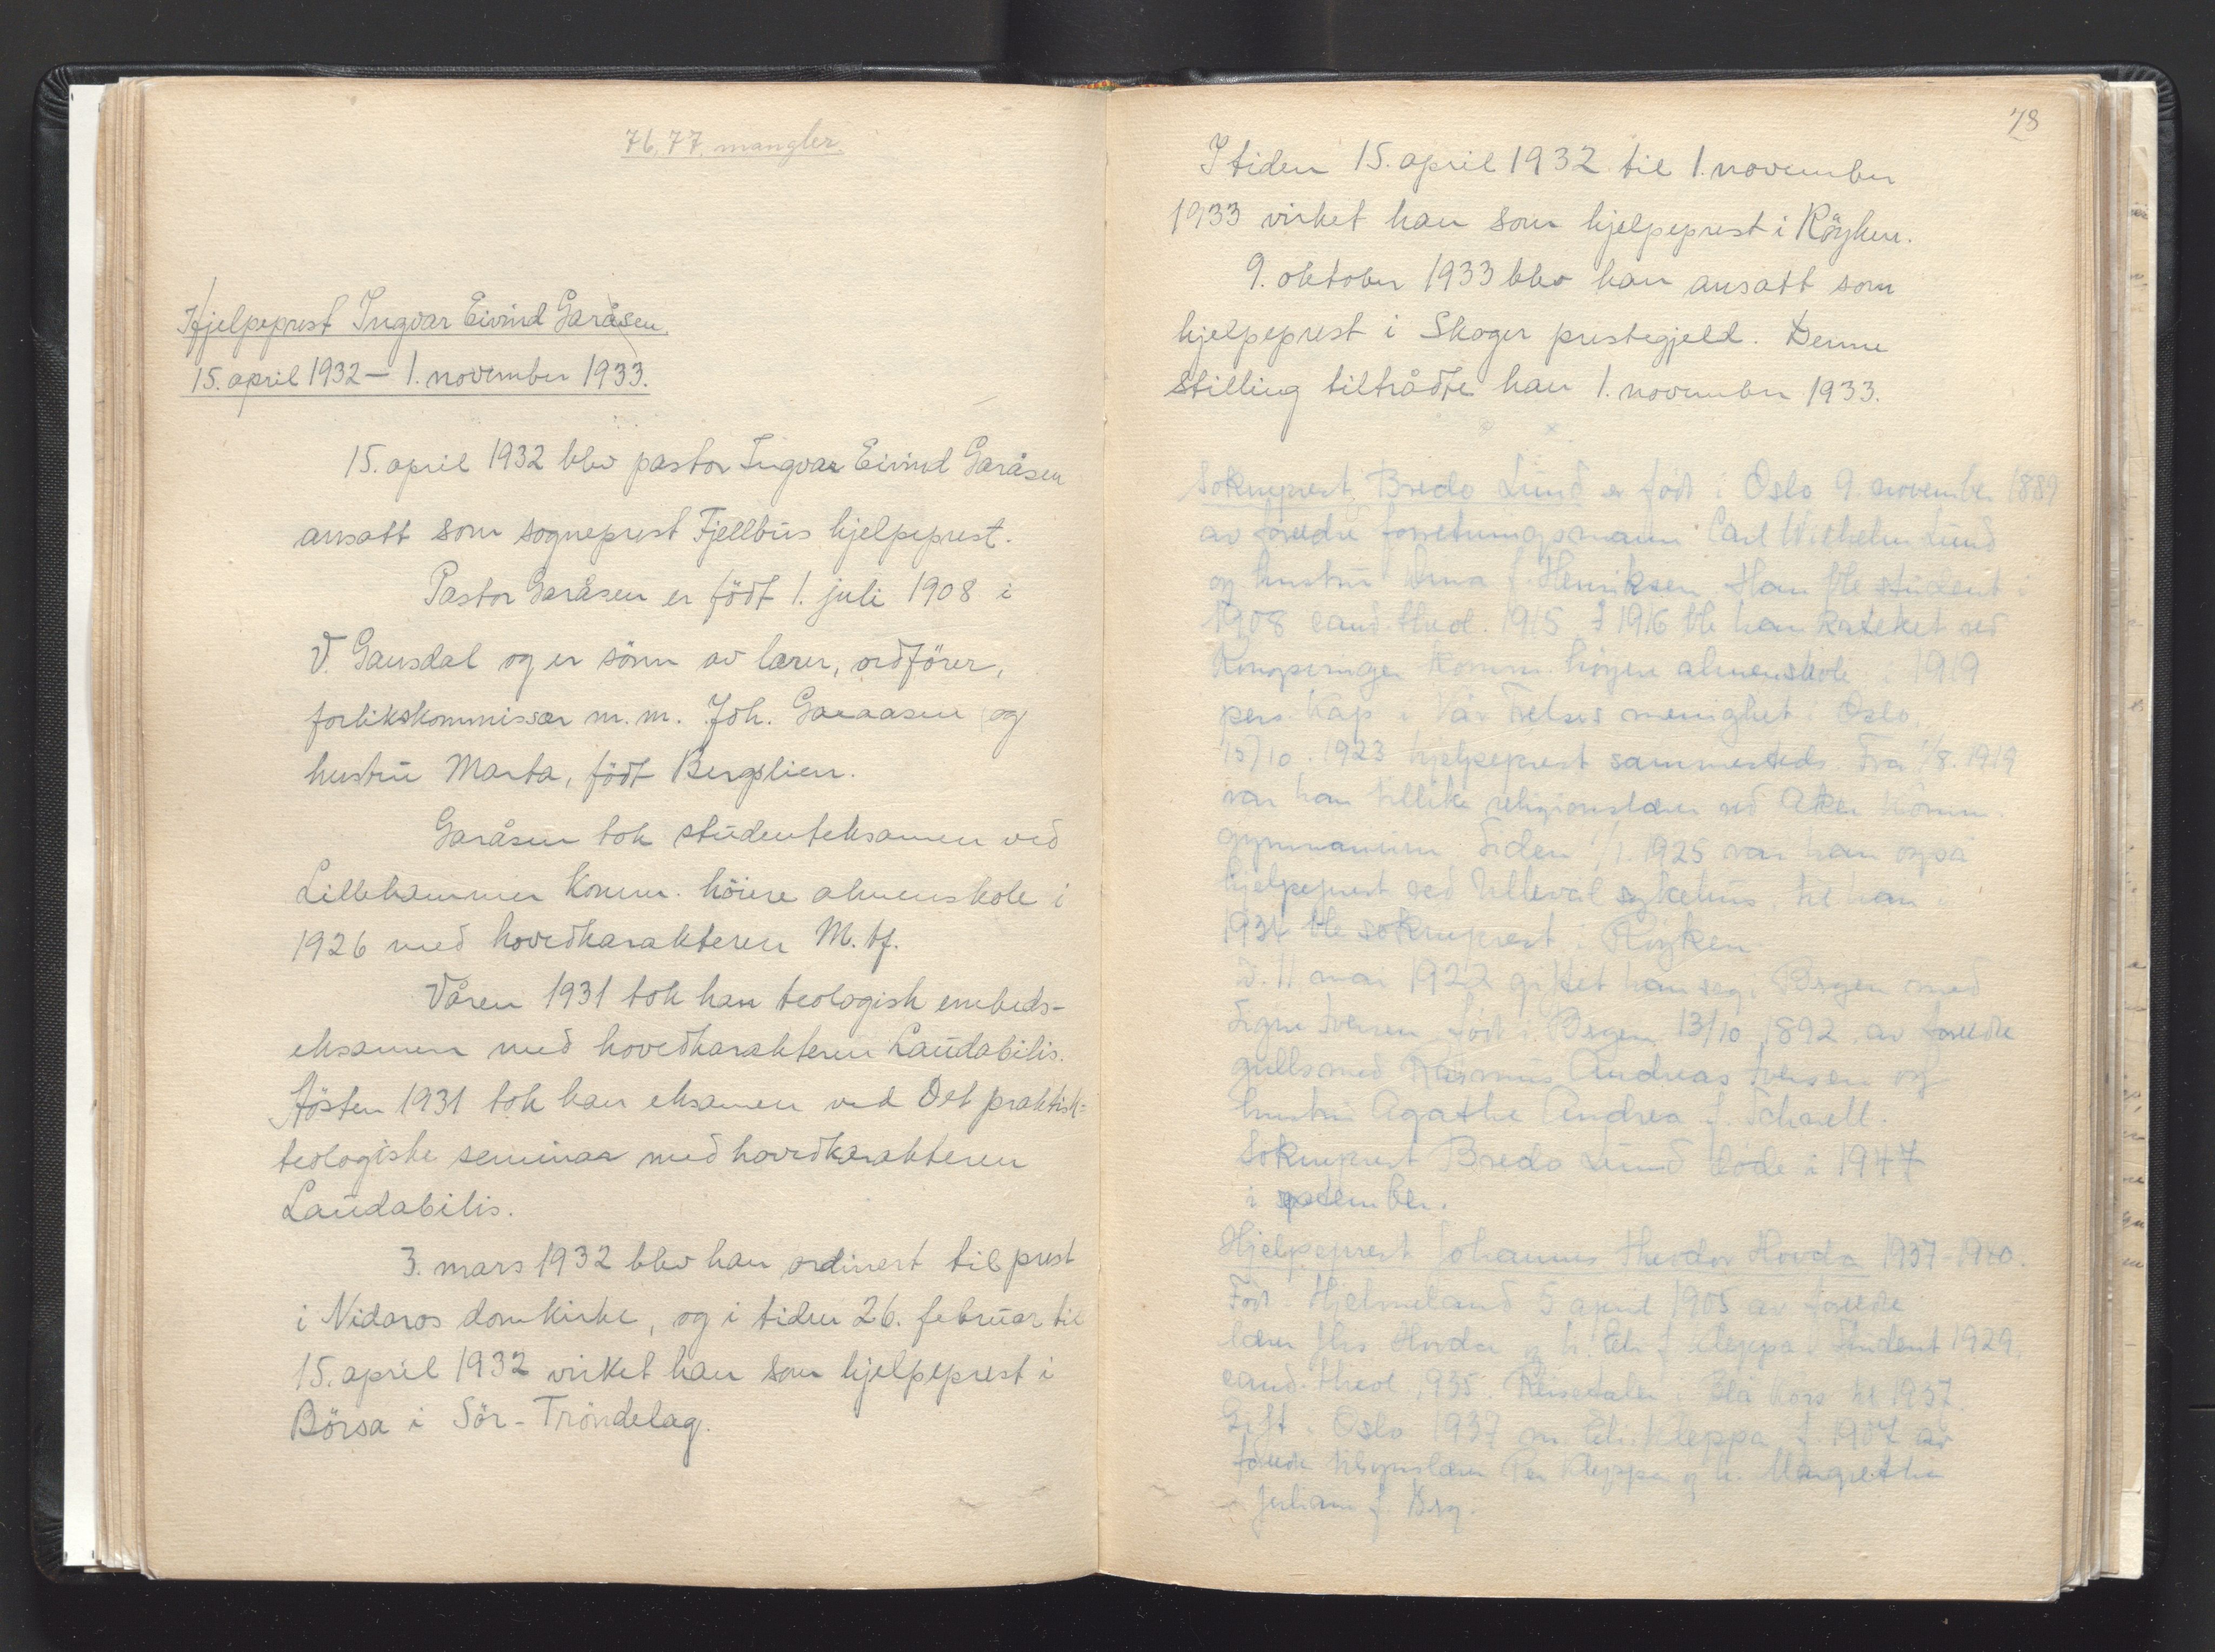 76, 77, mangler.
Hjelpeprest Ingvar Eivind Garåsen.
15. april 1932 – 1. november 1933.
15. april 1932 blev pastor Ingvar Eivind Garåsen
ansatt som sogneprest Fjellbus hjelpeprest.
Pastor Garåsen er födt 1. juli 1908 i
V. Gausdal og er sönn av lærer, ordförer,
forlikskommissær m.m. Joh. Garaasen og
hustru Marta, födt Bergslien.
Garåsen tok studenteksamen ved
Lillehammer Komm. höiere almenskole i
1926 med hovedkarakteren M. tf.
Våren 1931 tok han teologisk embeds-
eksamen med hovedkarakteren Laudabilis.
Hösten 1931 tok han eksamen ved Det praktisk-
teologiske seminar med hovedkarakteren
Laudabilis.
3. mars 1932 blev han ordinert til prest
i Nidaros domkirke, og i tiden 26. februar til
15. april 1932 virket han som hjelpeprest i
Börsa i Sör-Tröndelag.
78
I tiden 15. april 1932 til 1. november
1933 virket han som hjelpeprest i Röyken.
9. oktober 1933 blev han ansatt som
hjelpeprest i Skoger prestegjeld. Denne
stilling tiltrådte han 1. november 1933.
Sokneprest Bredo Lund er født i Oslo 9. november 1889
av foreldre forretningsmann Carl Wilhelm Lund
og hustru f. Henriksen. Han ble student i
1908 cand. theol. 1915. I 1916 ble han kateket ved
Kongsvinger Komm. høyere almenskole i 1919
pers. Kap. i Vår Frelsers menighet i Oslo,
15/10. 1923 hjelpeprest sammesteds. Fra 1/8. 1919
var han tillike religionslærer ved Aker Komm.
gymnasium. Siden 1/1. 1925 var han også
hjelpeprest ved Ullevål sykehus, til han i
1934 ble sokneprest i Røyken
D. 11 mai 1922 giftet han seg i Bergen med
Signe Iversen født i Bergen 13/10 1892 av foreldre
gullsmed Rasmus Andreas Iversen og
hustru Agathe Andrea f. Schaell.
Sokneprest Bredo Lund døde i 1947
i september.
Hjelpeprest Johannes Theodor Hovda 1937-1940.
Født i Hjelmeland 5 april 1905 av foreldre
lærer Hovda og h. Eli f. Kleppa. Student 1929,
cand. theol. 1935. Reisetaler i Blå Kors til 1937.
Gift i Oslo 1937 m. Eli Kleppa f. 1907 av
foreldre Per Kleppa og h. Margrethe
f. Berg.